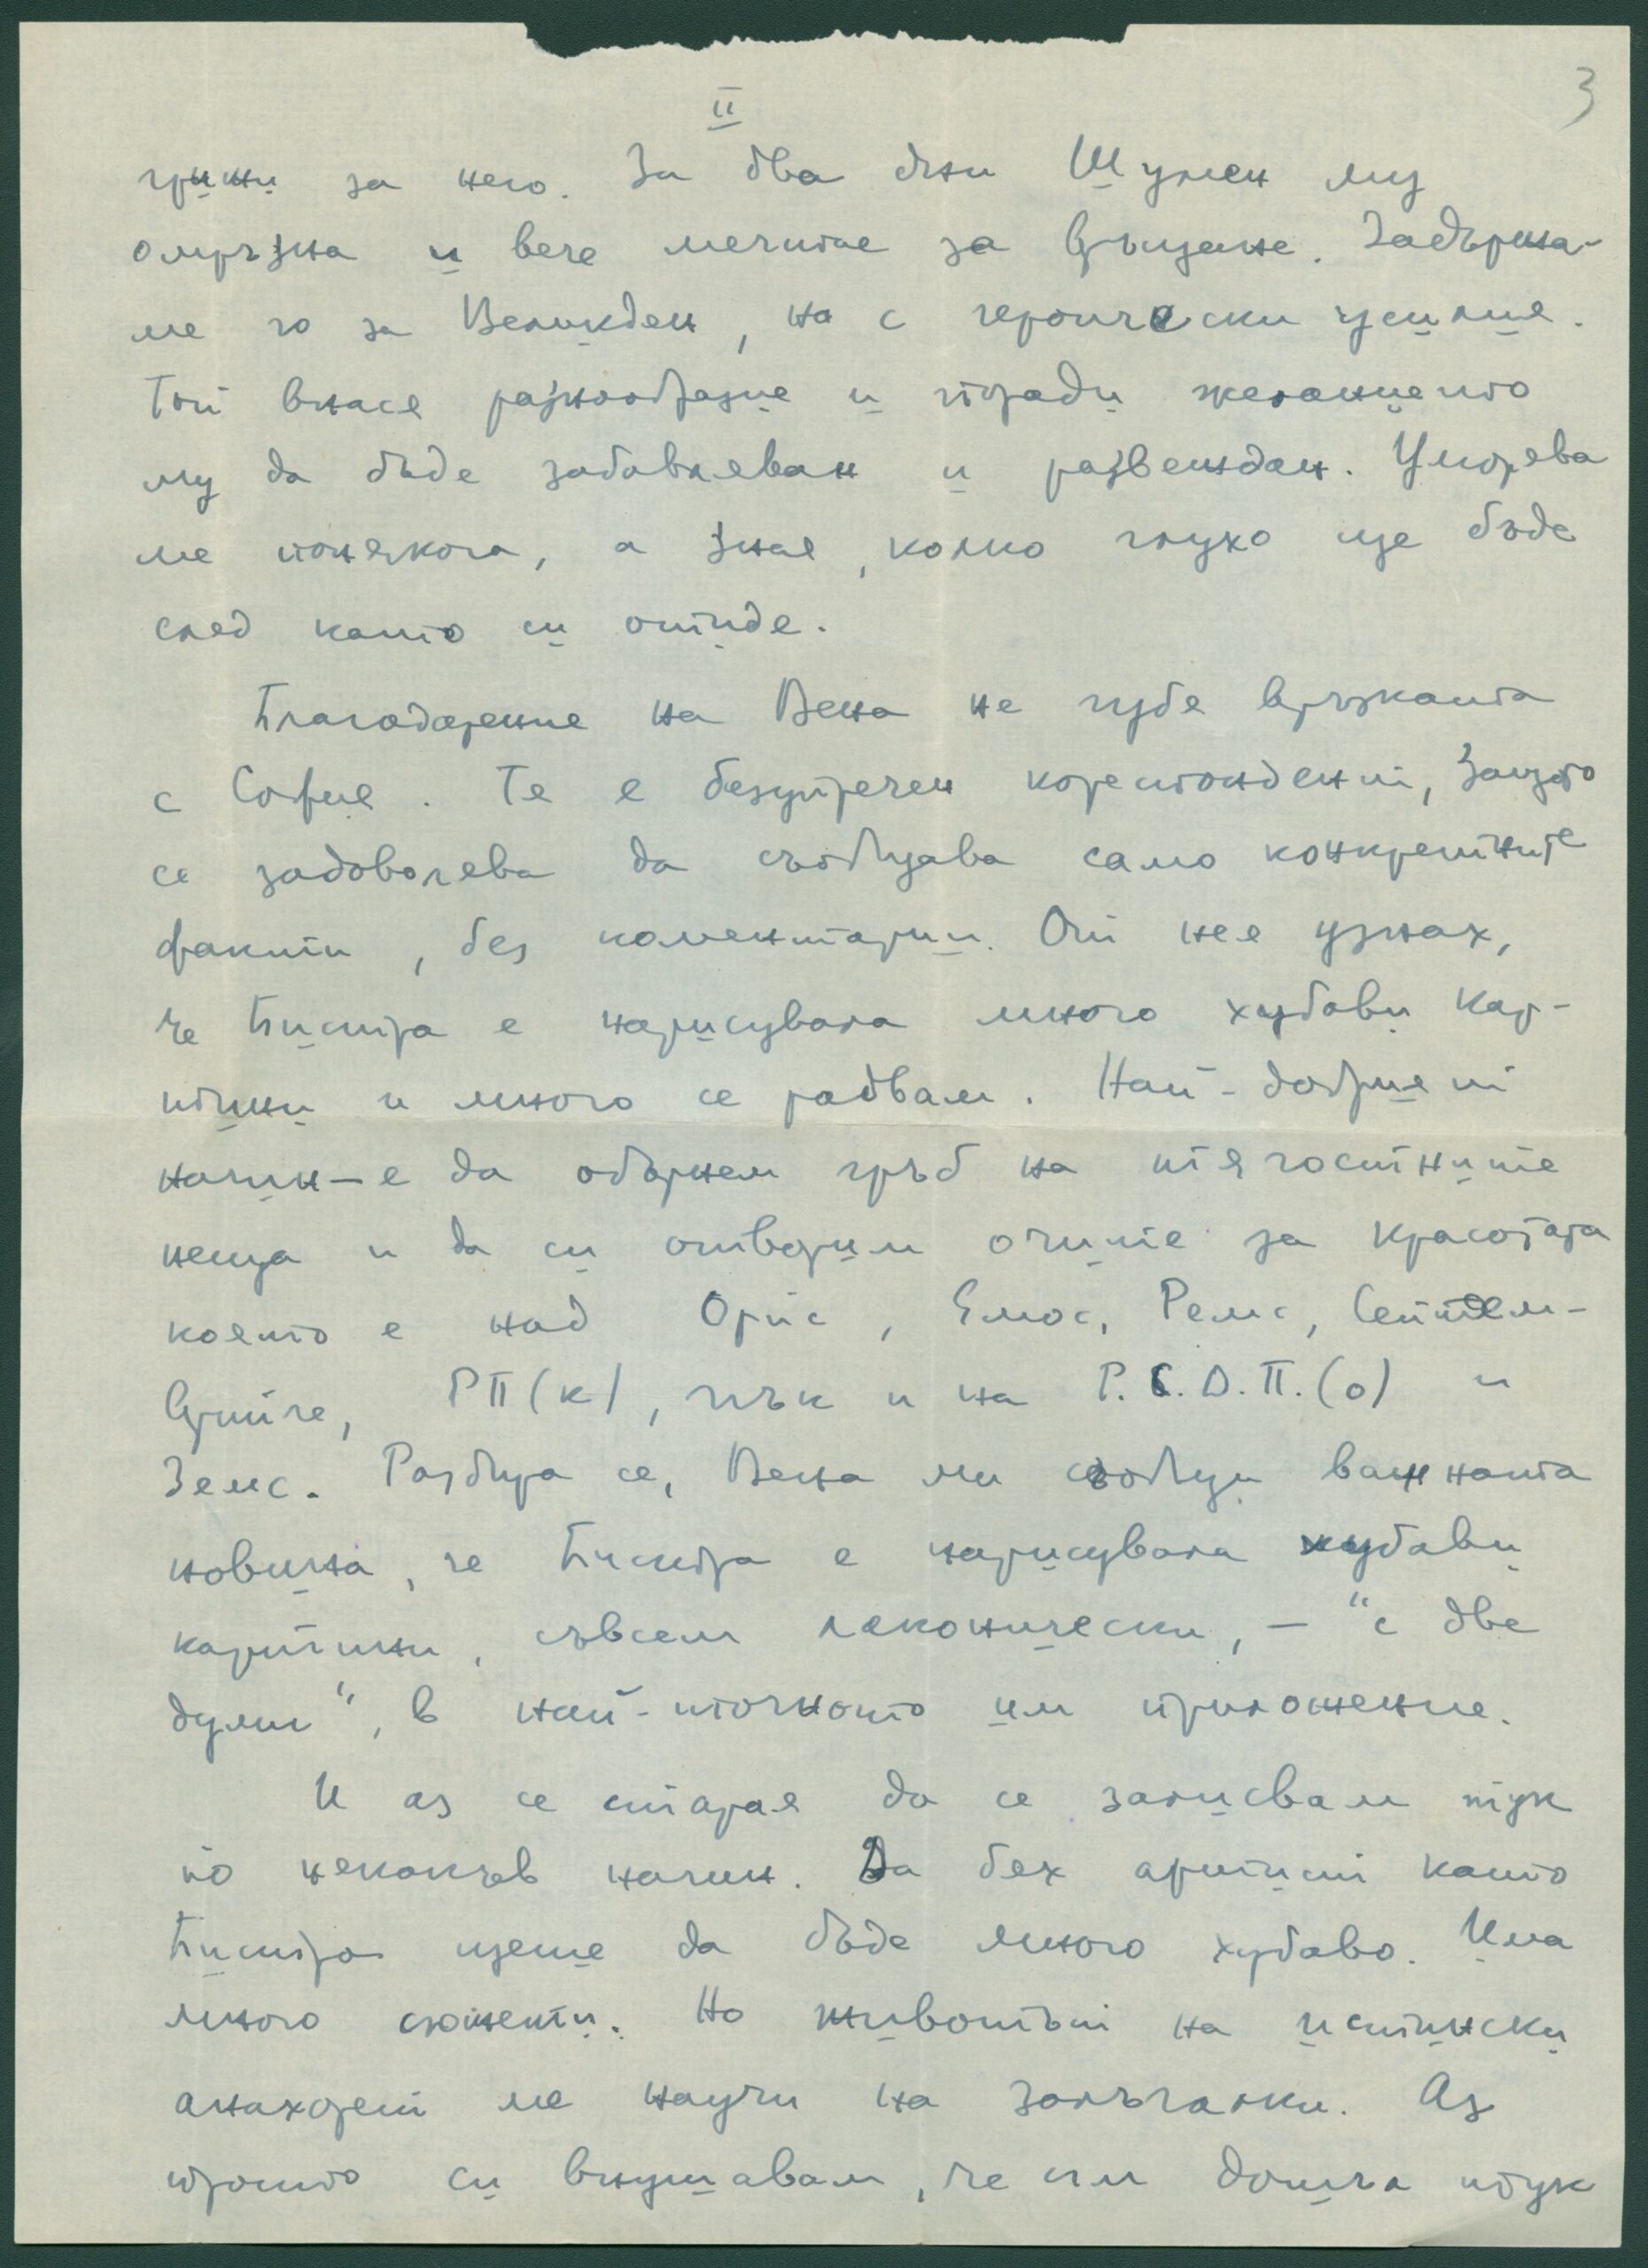 3
II
грижи за него. За два дни Шумен му
омръзна и вече мечтае за връщане. Задържа-
ме го за Великден, но с героически усилия.
Той внася разнообразие и поради желанието
му да бъде забавляван и развеждан. Уморява
ме понякога, а зная, колко глухо ще бъде
след като си отиде.
Благодарение на Вена не губя връзката
с София. Тя е безупречен кореспондент, защото
се задоволява да съобщава само конкретните
факти, без коментарии. От нея узнах,
че Бистра е нарисувала много хубави кар-
тини и много се радвам. Най-добрият
начин – е да обърнем гръб на тягостните
неща и да си отворим очите за красотата
която е над Орис, Ямос, Ремс, Септем-
врийче, РП(к), пък и на Р.С.Д.П.(о) и
Земс. Разбира се, Вена ми съобщи важната
новина, че Бистра е нарисувала хубави
картини, съвсем лаконически, – "с две
думи", в най-точното им приложение.
И аз се старая да се залисвам тук
по някакъв начин. Да бях артист като
Бистра щеше да бъде много хубаво. Има
много сюжети. Но животът на истински
анахорет ме научи на залъгалки. Аз
просто си внушавам, че съм дошла тук